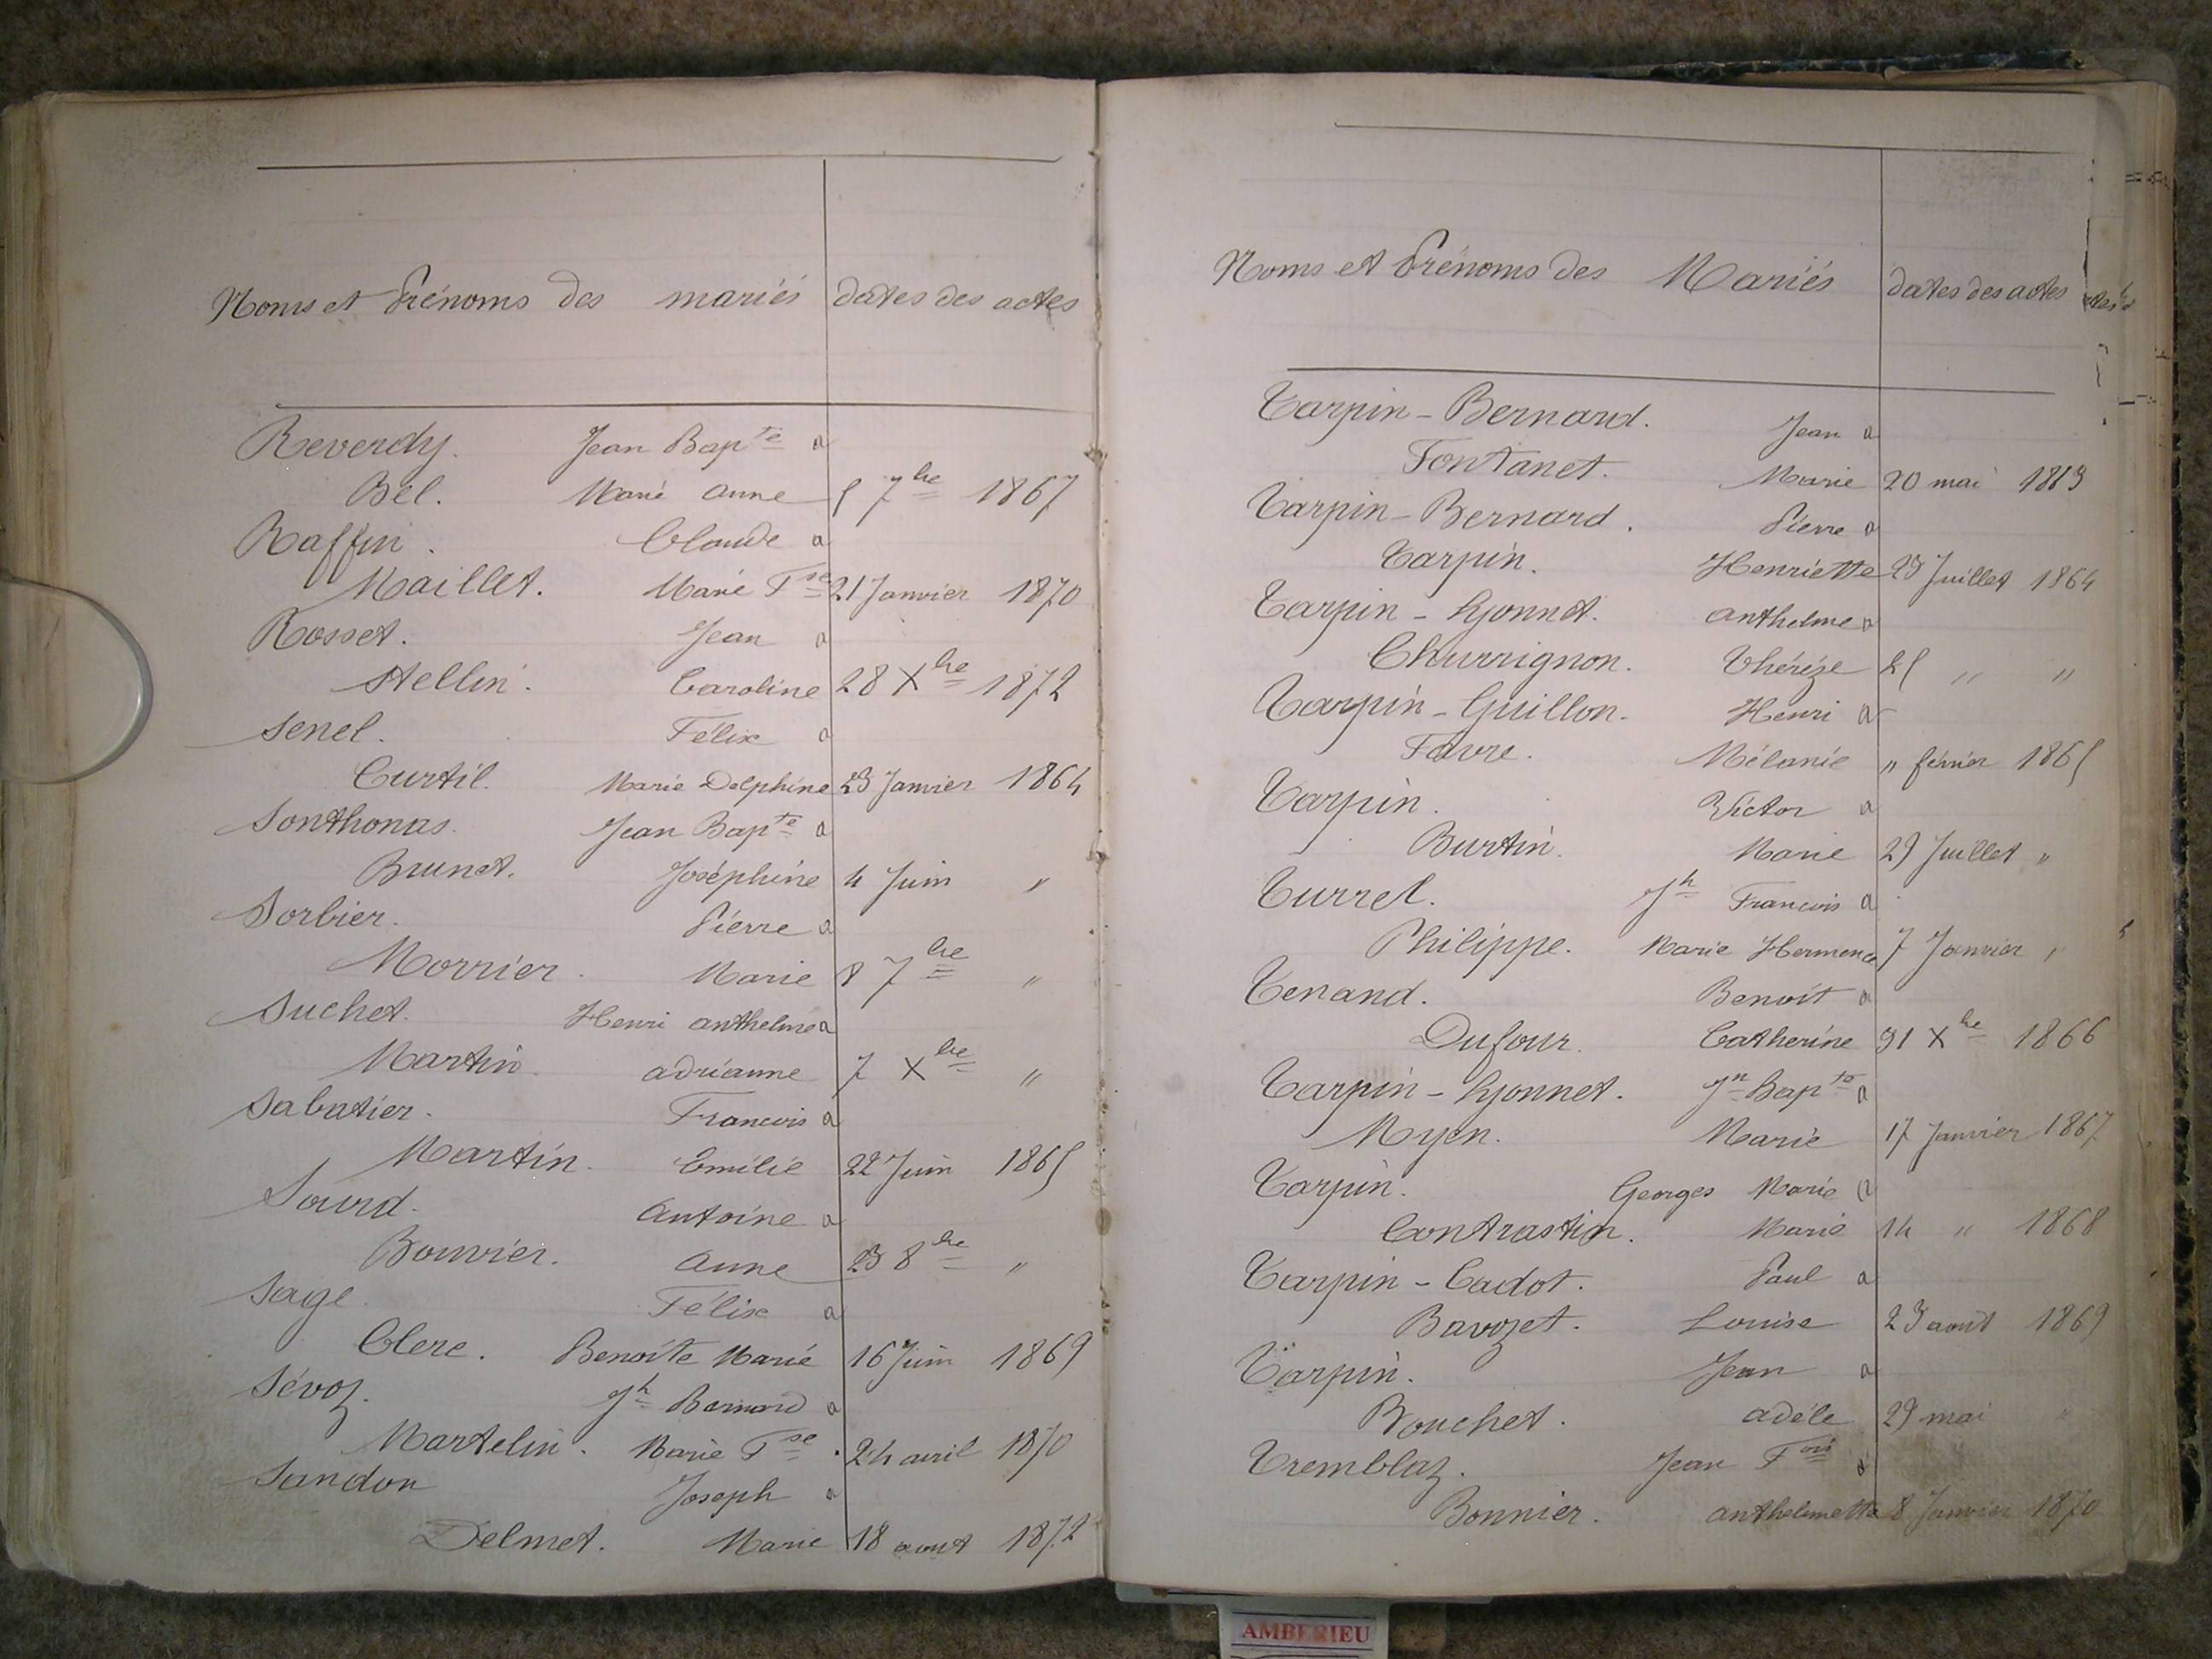 Noms et Prénoms des mariés dates des actes
Reverdy. Jean Bapte a
Bel. Marie anne 5 7bre 1867
Raffin. Claude a
Maillet. Marie Fse 21 Janvier 1870
Rosset. Jean a
Stellin. Caroline 28 Xbre 1872
Senel. Félix a
Curtil. Marie Delphine 23 Janvier 1864
Sonthonas. Jean Bapte a
Brunet. Joséphine 4 Juin "
Sorbier. Pierre a
Morrier. Marie 8 7bre "
Suchet. Henri anthelme a
Martin. adrianne 7 Xbre "
Sabatier. Francois a
Martin. Emilie 22 Juin 1865
Sourd. Antoine a
Bouvier. Anne 23 8bre "
Sage. Félix a
Clerc. Benoite Marie 16 Juin 1869
Sévoz. Jh Bernard a
Martelin. Marie Fse. 24 avril 1870
Sandon Joseph a
Delmet. Marie 18 aout 1872
Noms et Prénoms des Mariés dates des actes
Tarpin-Bernard. Jean a
Fontanet. Marie 20 mai 1863
Tarpin-Bernard. Pierre a
Tarpin. Henriette 23 Juillet 1864
Tarpin-Lyonnet. anthelme a
Churrignon. Thérèze 25 " "
Tarpin-Guillon. Henri a
Favre. Mélanie " février 1865
Tarpin. Victor a
Burtin. Marie 29 Juillet "
Turrel. Jh Francois a
Philippe. Marie Hermence 7 Janvier "
Tenand. Benoit a
Dufour. Catherine 31 Xbre 1866
Tarpin-Lyonnet. Jn Bapte a
Moyen. Marie 17 Janvier 1867
Tarpin. Georges Marie a
Contrastin. Marie 14 " 1868
Tarpin-Cadot. Paul a
Bavozet. Louise 23 aout 1869
Tarpin. Jean a
Bouchet. adèle 29 mai "
Tremblaz. Jean Fois a
Bonnier. anthelmette 8 Janvier 1870
AMBERIEU